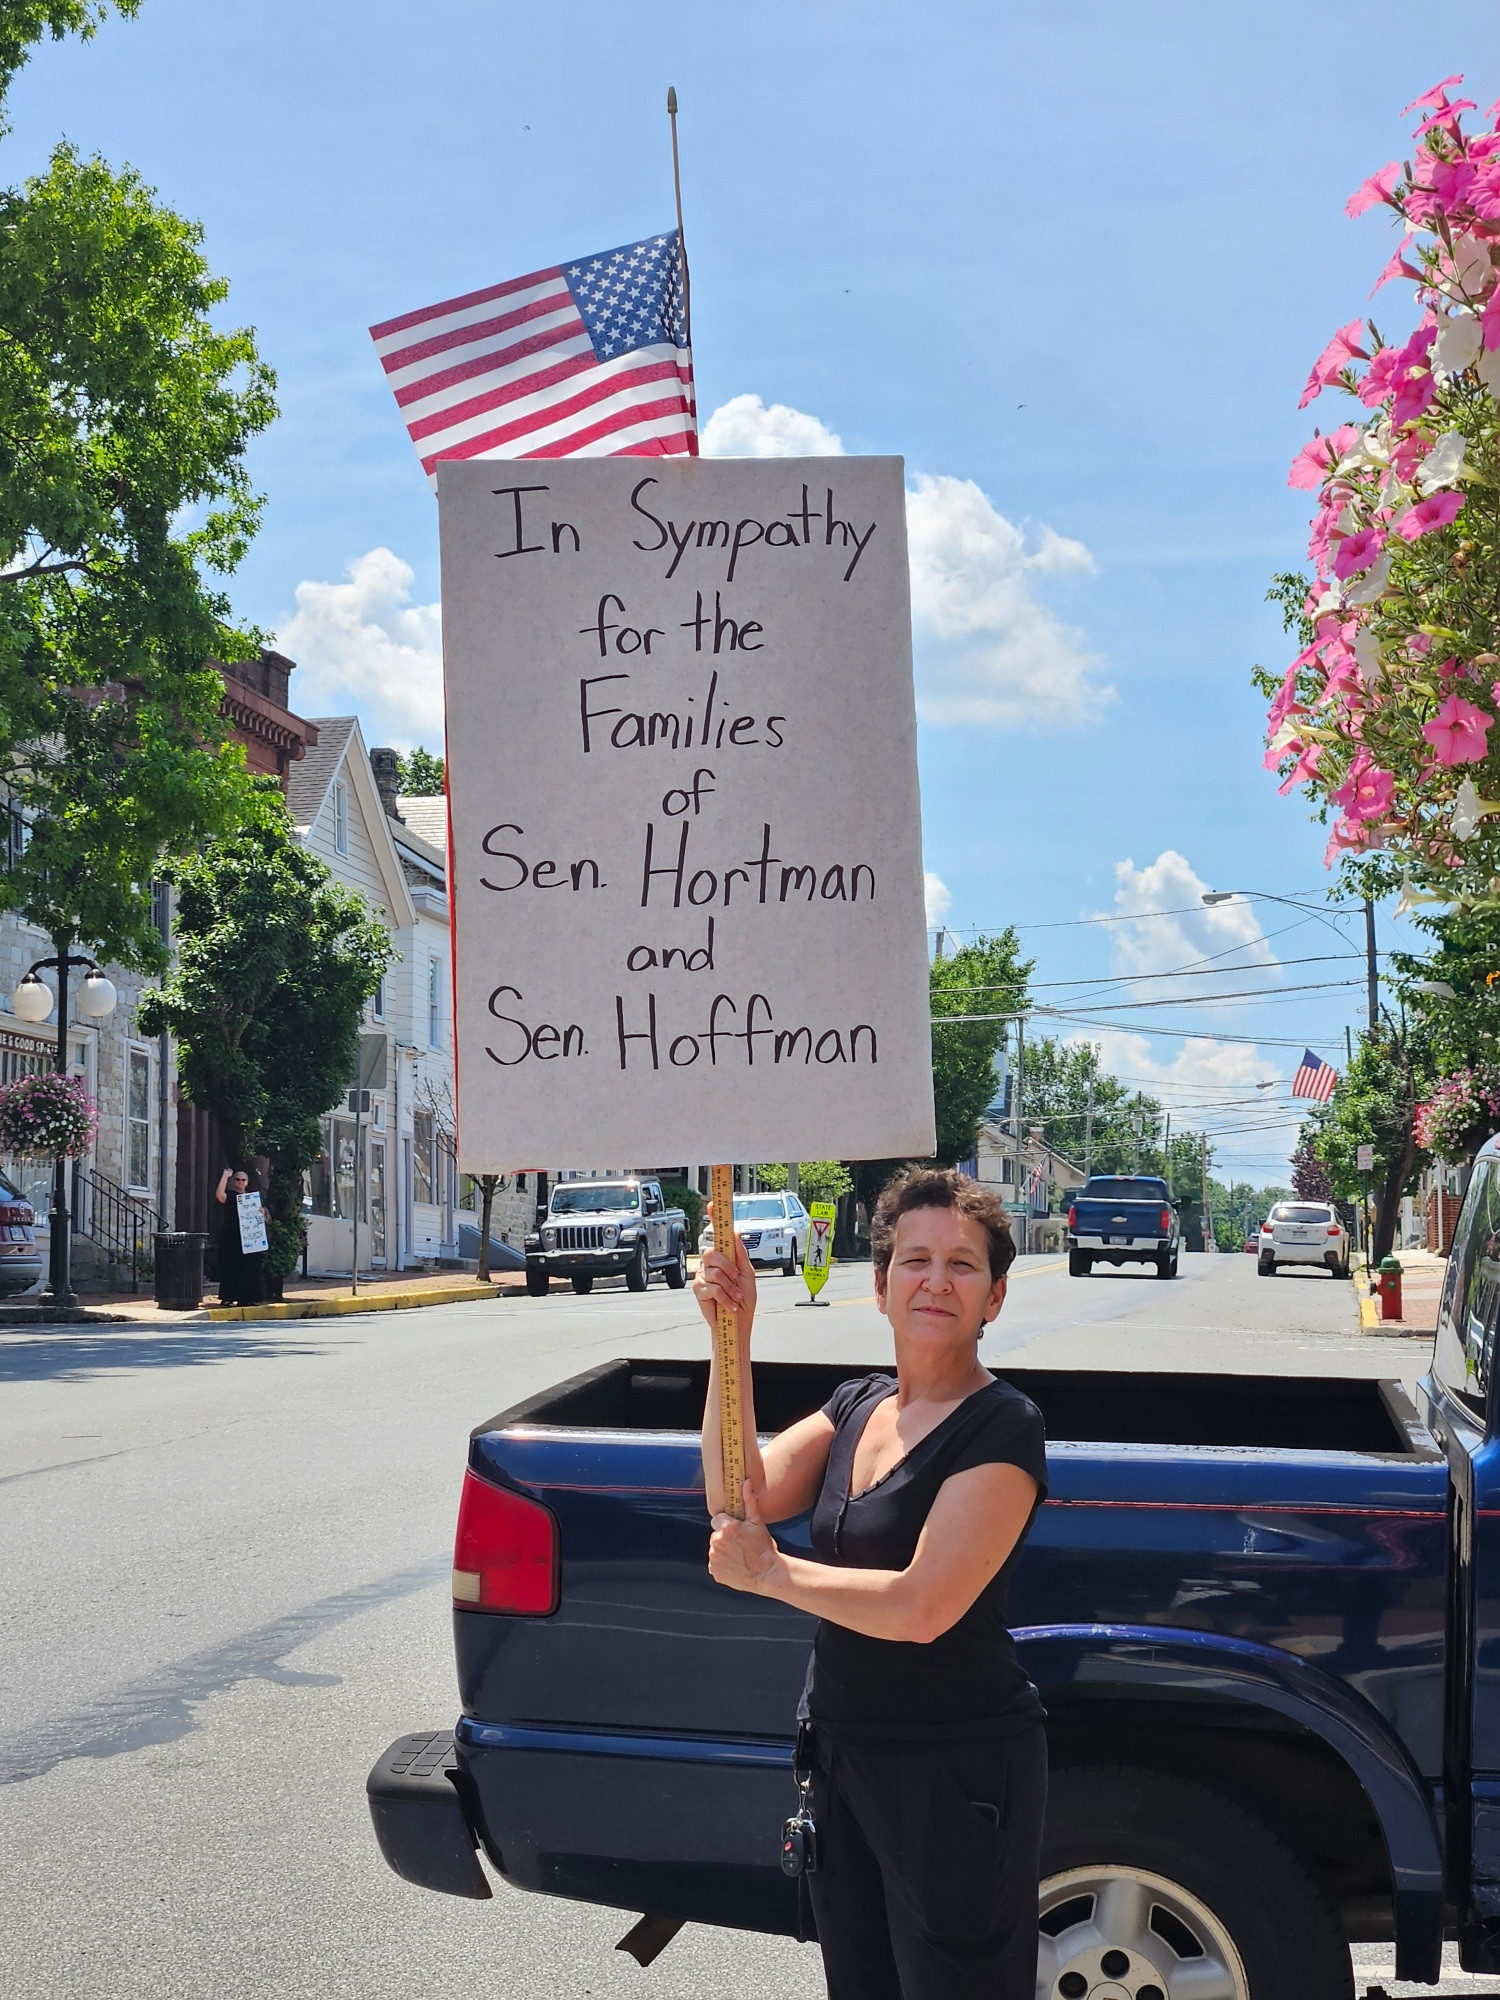 In Sympathy
for the
Families
of
Sen. Hortman
and
Sen. Hoffman
STATE
LAW